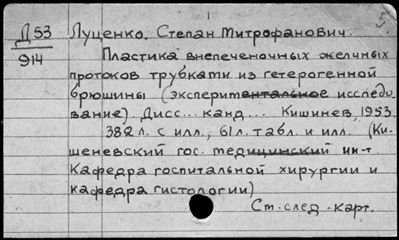 5
Д53 Луценко, Степан Митрофанович.
914 Пластика внепеченочных желчных
протоков трубками из гетерогенной
брюшины (экспериментальное исследо-
вание). Дисс... канд... Кишинев, 1953.
382 л. с илл., 61 л. табл. и илл. (Ки-
шеневский гос. медицинский ин-т
Кафедра госпитальной хирургии и
кафедра гистологии)
См. след. карт.